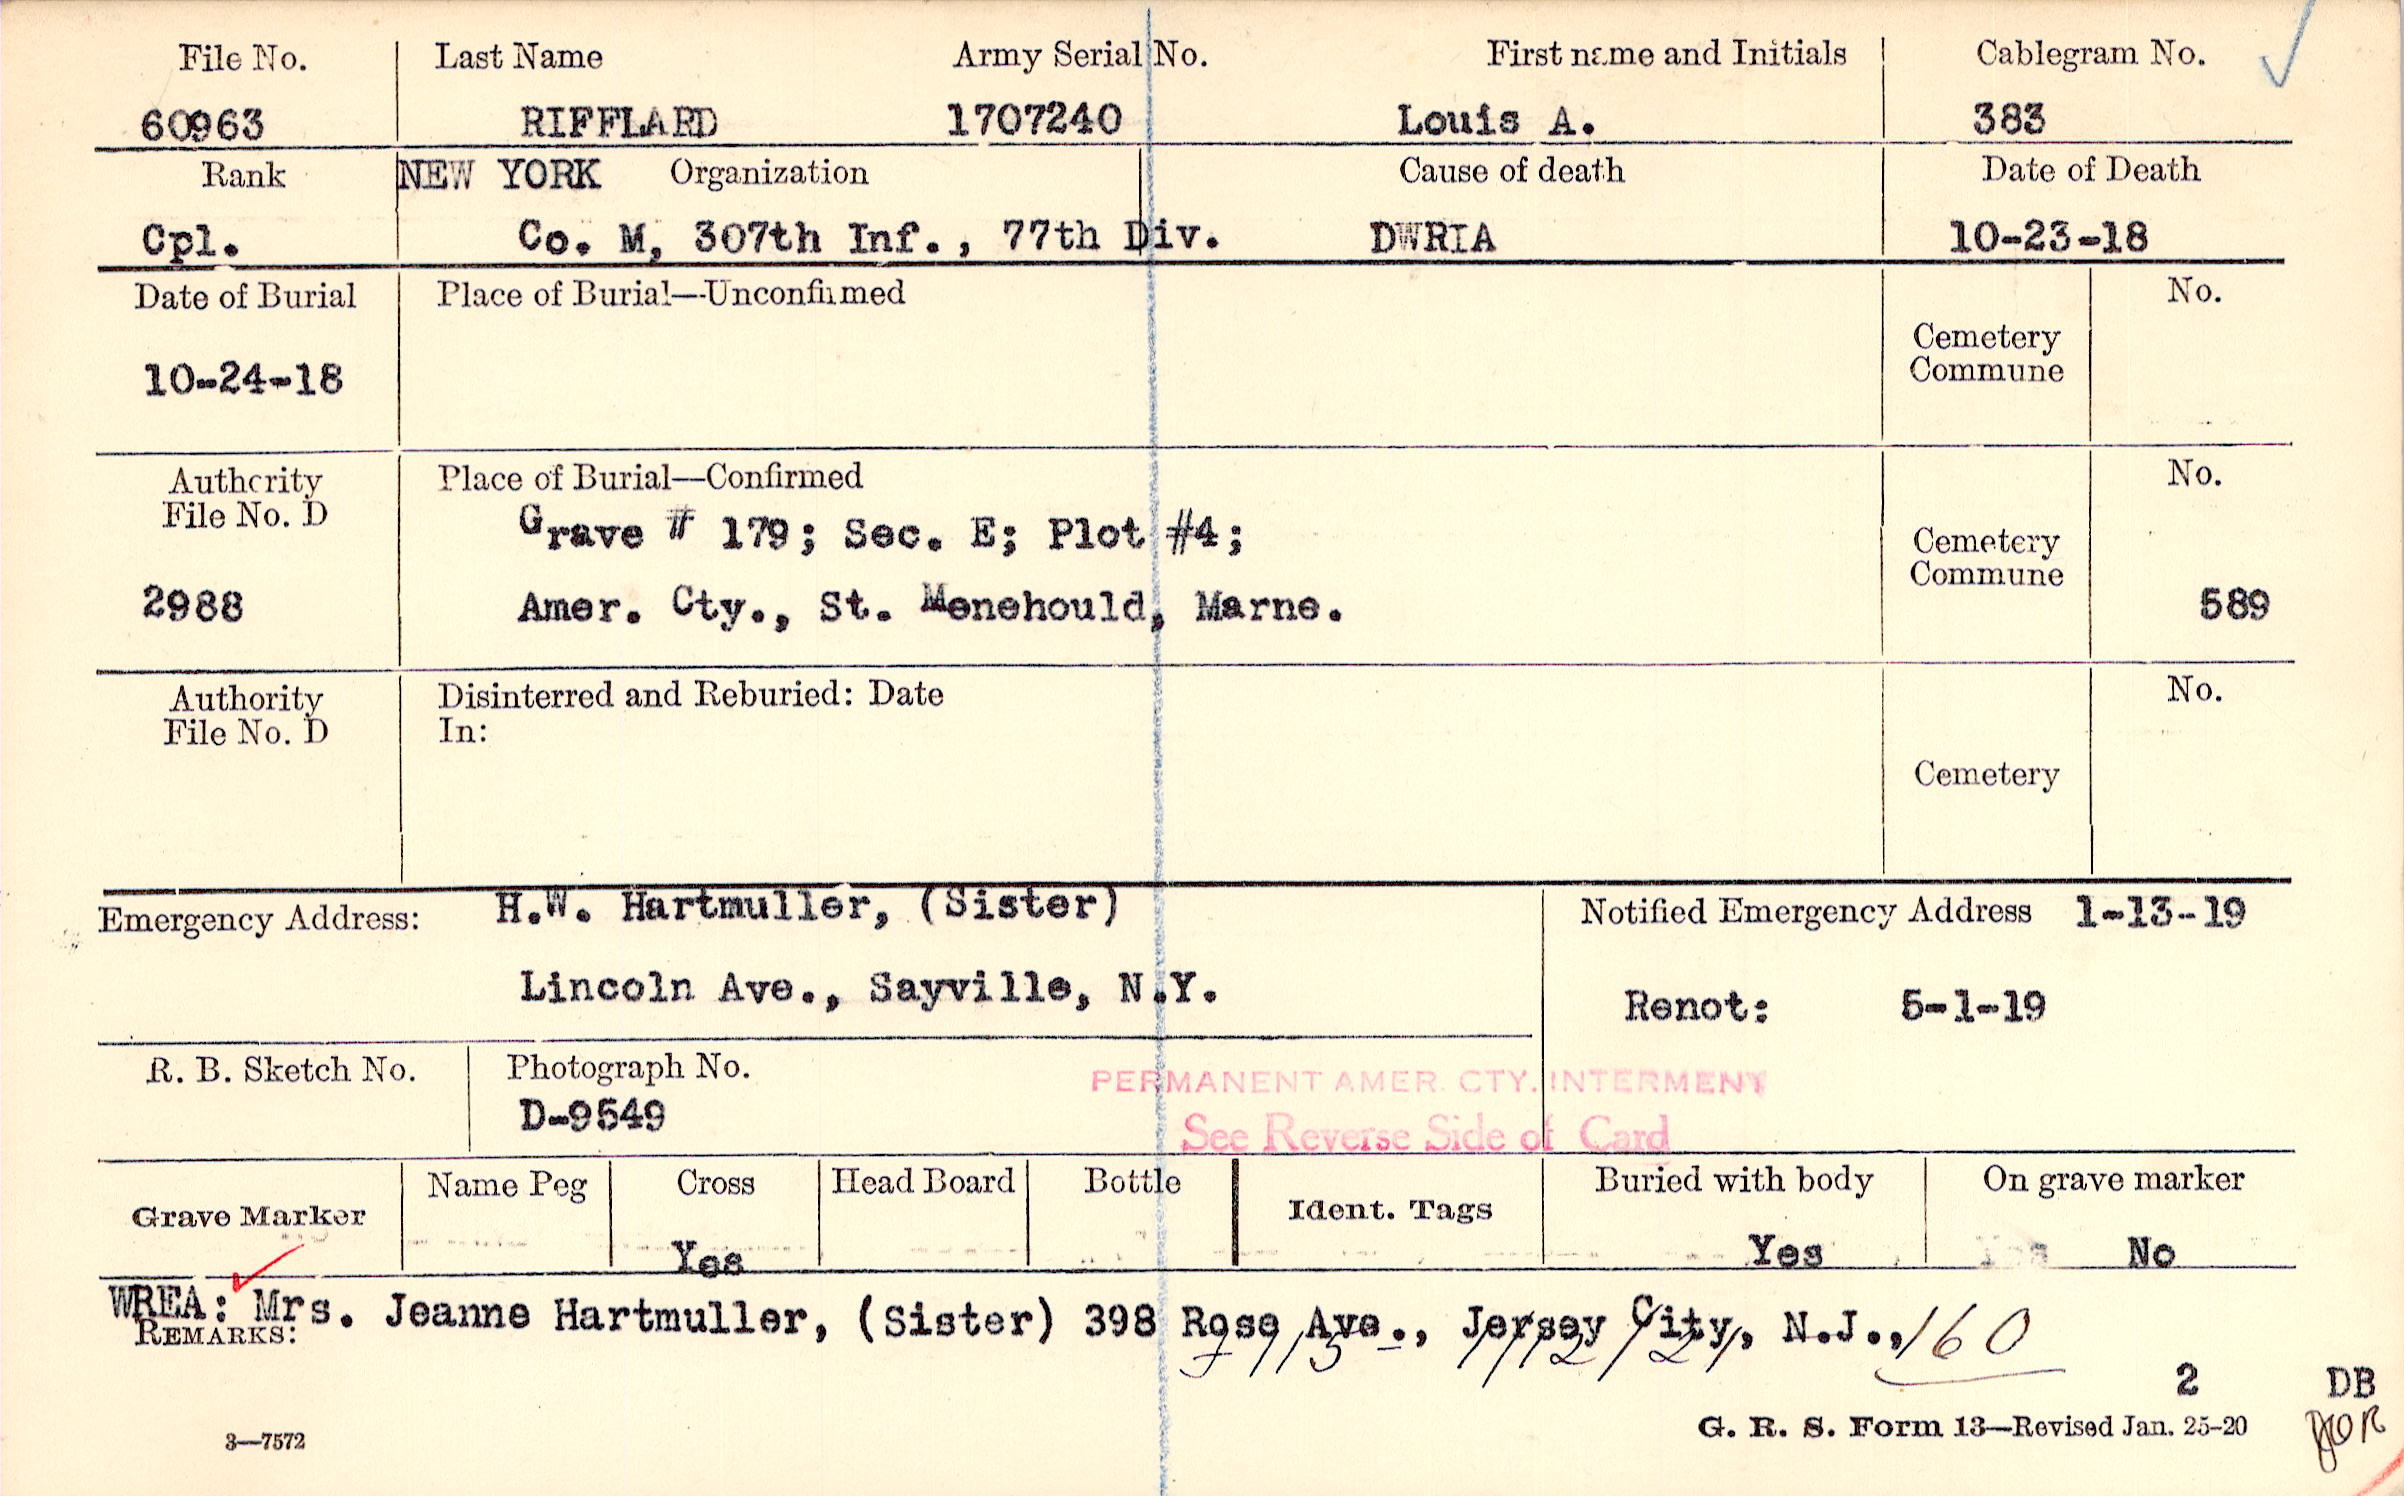 File No. Last Name Army Serial No. First name and Initials Cablegram No.
60963 RIFFLARD 1707240 Louis A. 383
Rank NEW YORK Organization Cause of death Date of Death
Cpl. Co. M, 307th Inf., 77th Div. DWRIA 10-23-18
Date of Burial Place of Burial—Unconfirmed No.
Cemetery
Commune
10-24-18
Authority Place of Burial—Confirmed No.
File No. D Grave # 179; Sec. E; Plot #4; Cemetery
Commune
2988 Amer. Cty., St. Menehould, Marne. 589
Authority Disinterred and Reburied: Date No.
File No. D In:
Cemetery
Emergency Address: H.W. Hartmuller, (Sister) Notified Emergency Address 1-13-19
Lincoln Ave., Sayville, N.Y. Renot: 5-1-19
R. B. Sketch No. Photograph No.
D-9549
PERMANENT AMER. CTY. INTERMENT
See Reverse Side of Card
Grave Marker Name Peg Cross Head Board Bottle Ident. Tags Buried with body On grave marker
Yes Yes No
WREA: Mrs. Jeanne Hartmuller, (Sister) 398 Rose Ave., Jersey City, N.J.,
REMARKS: 160
2 DB
3—7572 G. R. S. Form 13—Revised Jan. 25-20